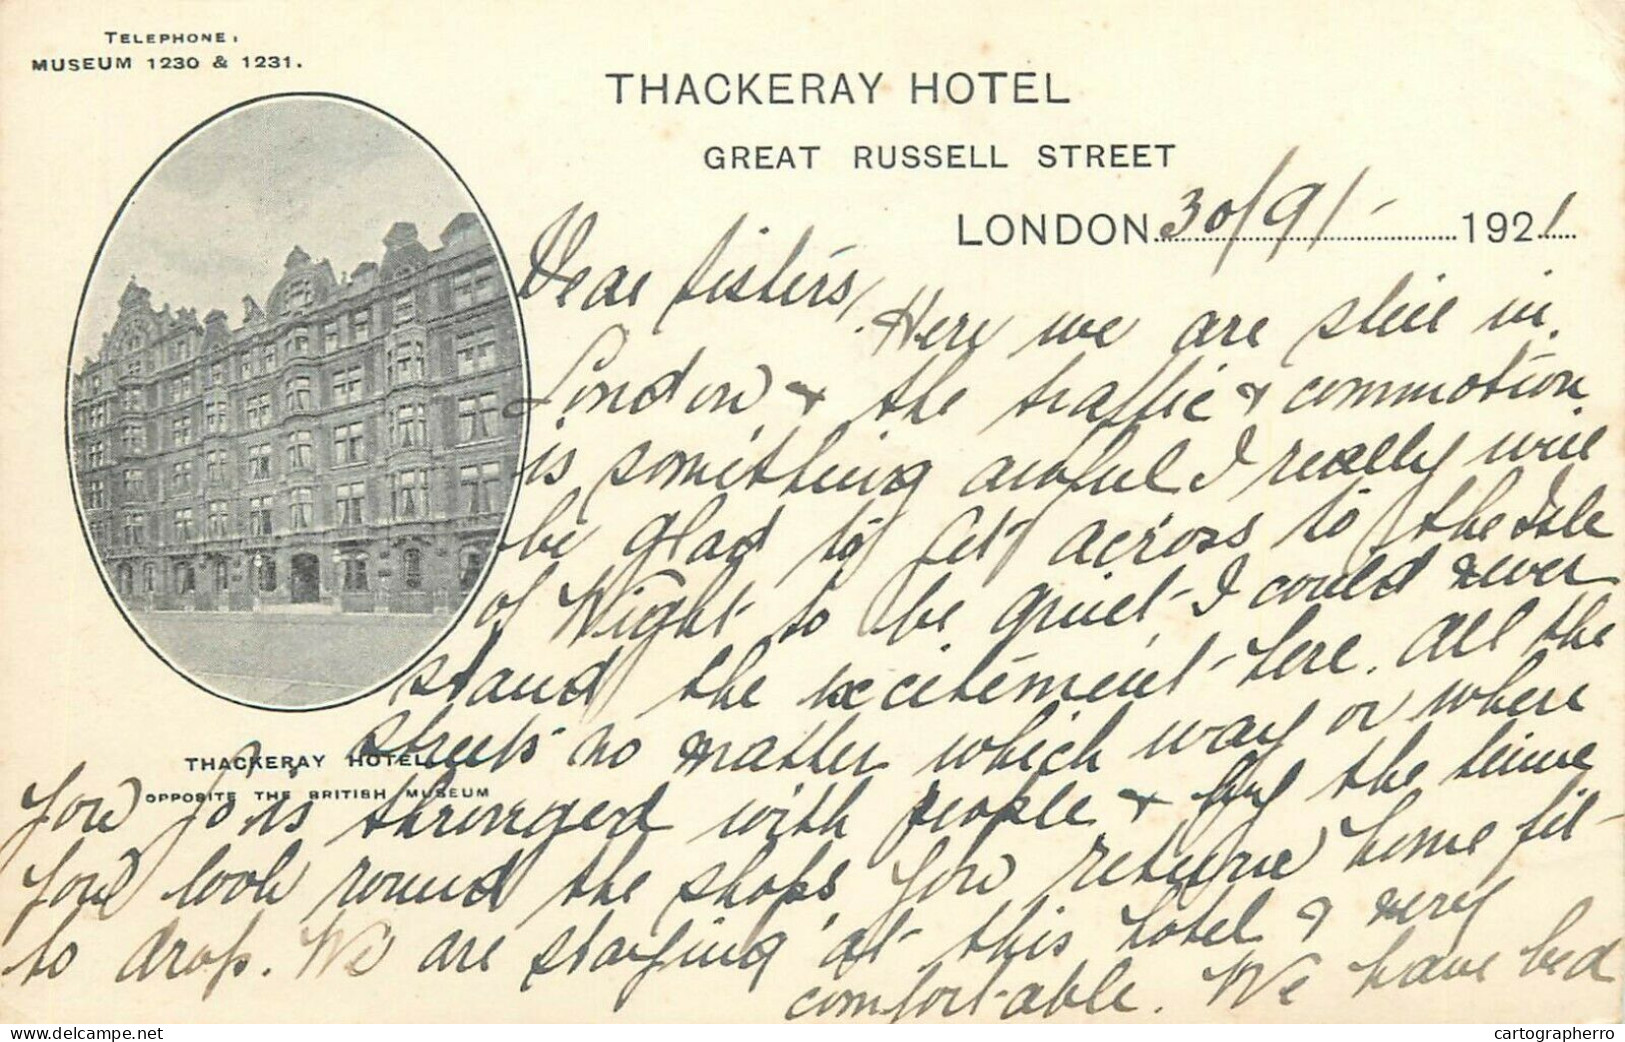 TELEPHONE:
MUSEUM 1230 & 1231.
THACKERAY HOTEL
GREAT RUSSELL STREET
LONDON 30/9/- 1921
Dear Sisters,
Here we are still in
London & the traffic & commotion
is something awful I really will
be glad to get across to the Isle
of Wight to be quiet I could never
stand the excitement here. All the
streets no matter which way or where
you go is thronged with people & by the time
you look round the shops you return home fit
to drop. We are staying at this hotel & very
comfortable. We have bed
THACKERAY HOTEL
OPPOSITE THE BRITISH MUSEUM
cartographerro